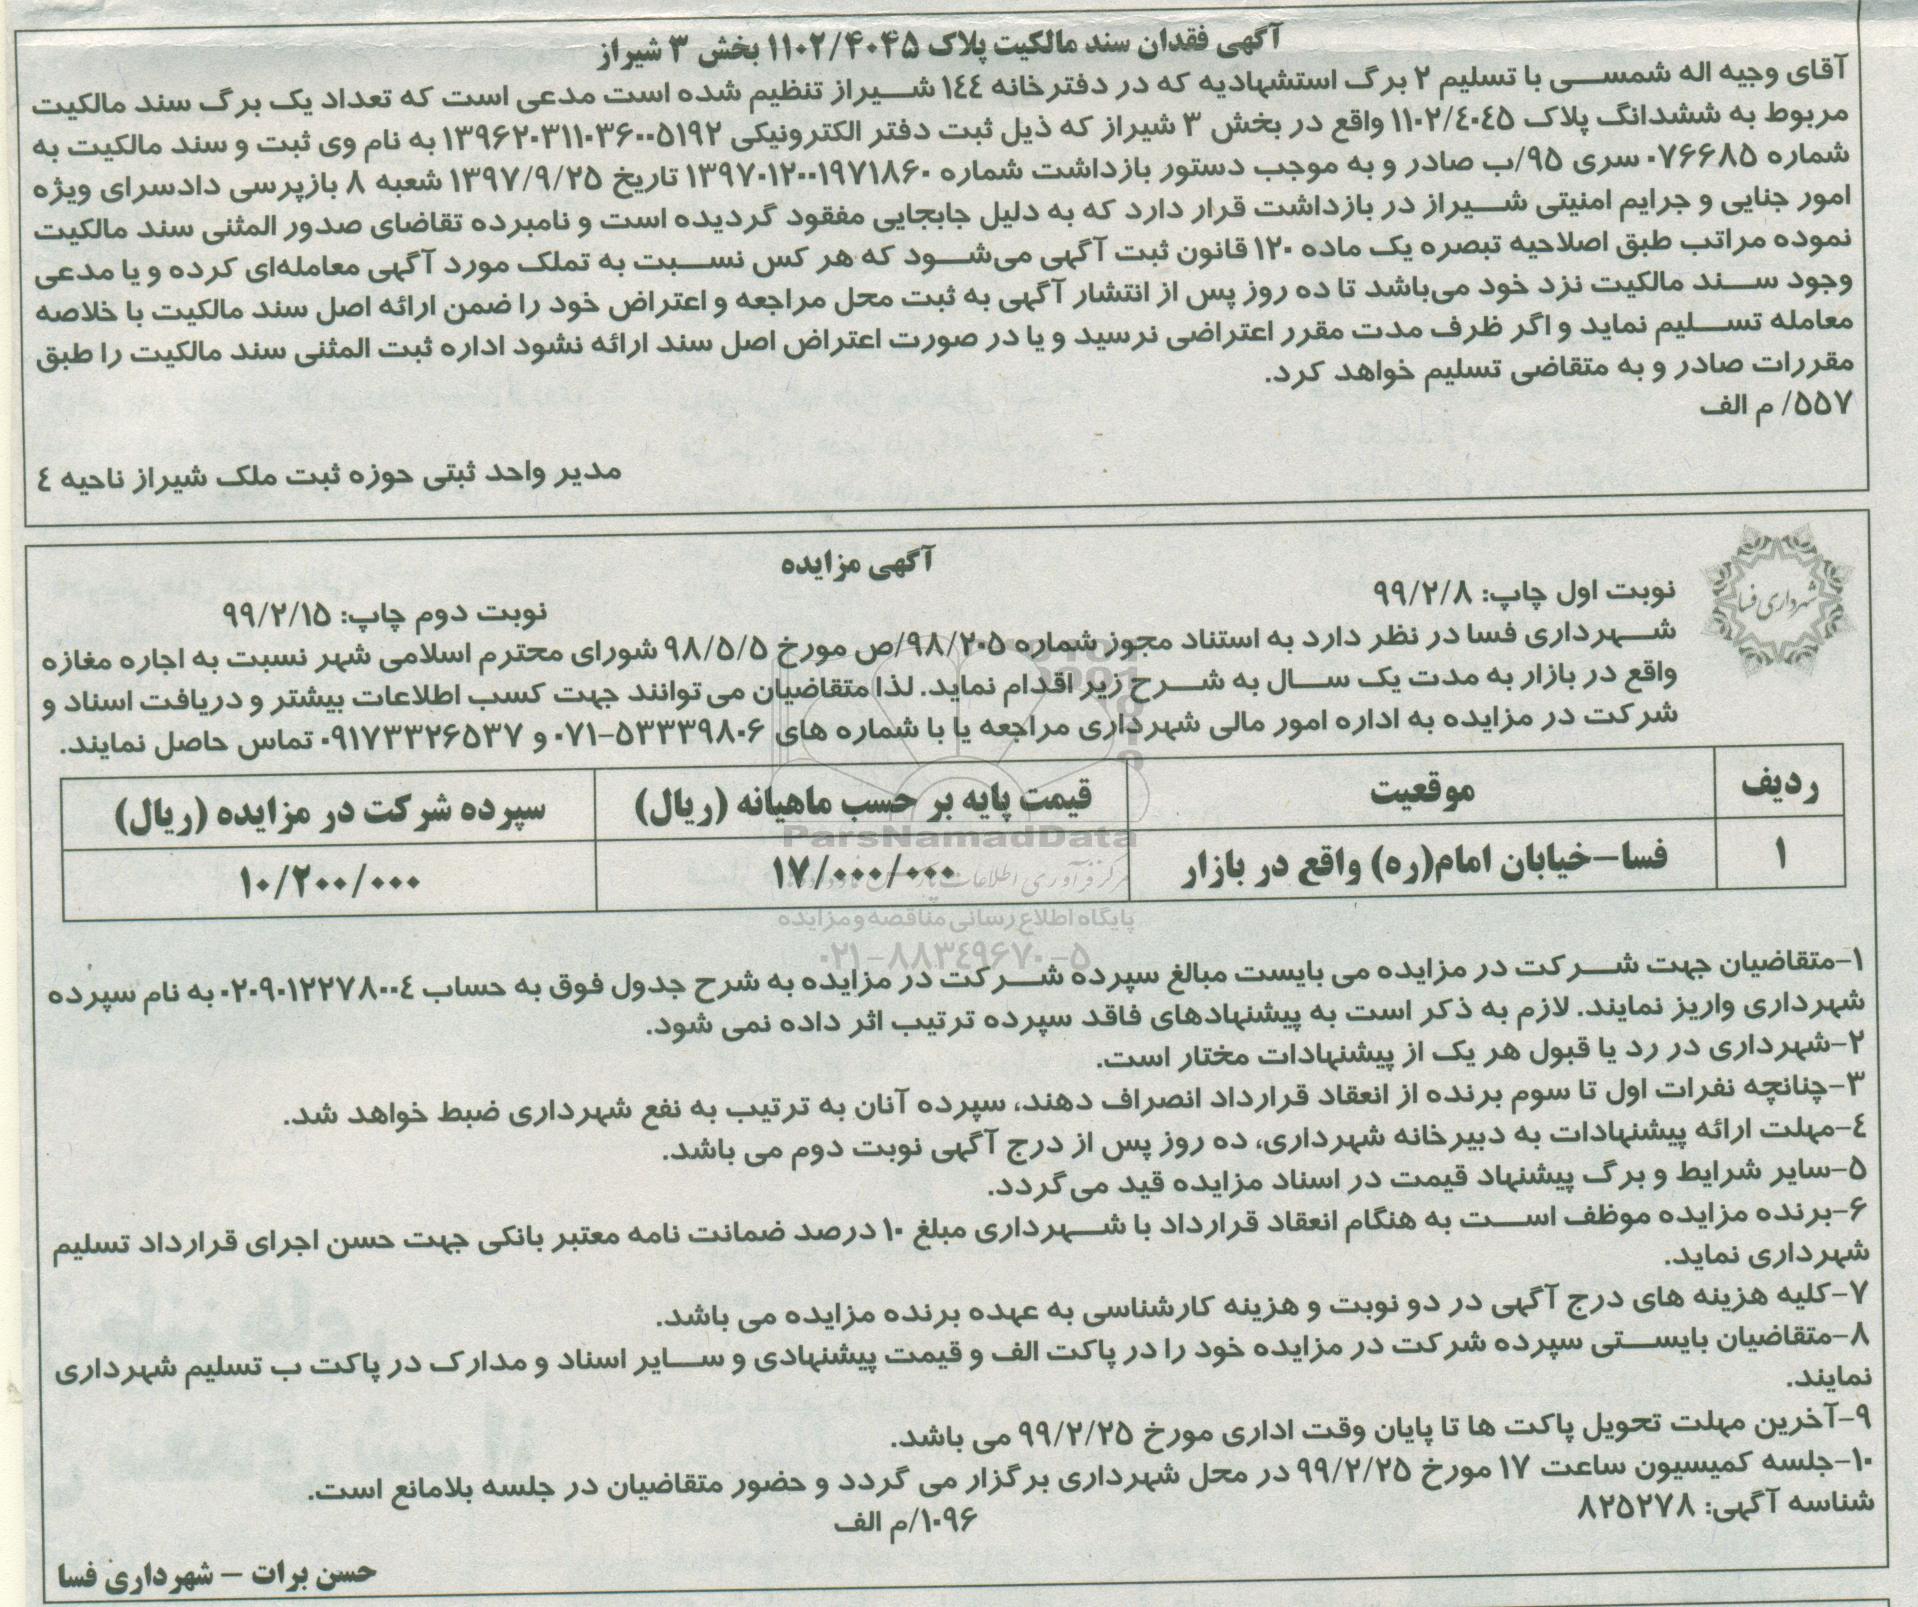 آگهی فقدان سند مالکیت پلاک ۱۱۰۲/۴۰۴۵ بخش ۳ شیراز
آقای وجیه اله شمسی با تسلیم ۲ برگ استشهادیه که در دفترخانه ۱۴۴ شیراز تنظیم شده است مدعی است که تعداد یک برگ سند مالکیت
مربوط به ششدانگ پلاک ۱۱۰۲/۴۰۴۵ واقع در بخش ۳ شیراز که ذیل ثبت دفتر الکترونیکی ۱۳۹۶۲۰۳۱۱۰۳۶۰۰۵۱۹۲ به نام وی ثبت و سند مالکیت به
شماره ۰۷۶۶۸۵ سری ۹۵/ب صادر و به موجب دستور بازداشت شماره ۱۳۹۷۰۱۲۰۰۱۹۷۱۸۶۰ تاریخ ۱۳۹۷/۹/۲۵ شعبه ۸ بازپرسی دادسرای ویژه
امور جنایی و جرایم امنیتی شیراز در بازداشت قرار دارد که به دلیل جابجایی مفقود گردیده است و نامبرده تقاضای صدور المثنی سند مالکیت
نموده مراتب طبق اصلاحیه تبصره یک ماده ۱۲۰ قانون ثبت آگهی می‌شود که هر کس نسبت به تملک مورد آگهی معامله‌ای کرده و یا مدعی
وجود سند مالکیت نزد خود می‌باشد تا ده روز پس از انتشار آگهی به ثبت محل مراجعه و اعتراض خود را ضمن ارائه اصل سند مالکیت با خلاصه
معامله تسلیم نماید و اگر ظرف مدت مقرر اعتراضی نرسید و یا در صورت اعتراض اصل سند ارائه نشود اداره ثبت المثنی سند مالکیت را طبق
مقررات صادر و به متقاضی تسلیم خواهد کرد.
۵۵۷/ م الف
مدیر واحد ثبتی حوزه ثبت ملک شیراز ناحیه ۴
شهرداری فسا
آگهی مزایده
نوبت اول چاپ: ۹۹/۲/۸
نوبت دوم چاپ: ۹۹/۲/۱۵
شهرداری فسا در نظر دارد به استناد مجوز شماره ۹۸/۲۰۵/ص مورخ ۹۸/۵/۵ شورای محترم اسلامی شهر نسبت به اجاره مغازه
واقع در بازار به مدت یک سال به شرح زیر اقدام نماید. لذا متقاضیان می توانند جهت کسب اطلاعات بیشتر و دریافت اسناد و
شرکت در مزایده به اداره امور مالی شهرداری مراجعه یا با شماره های ۵۳۳۳۹۸۰۶-۰۷۱ و ۰۹۱۷۳۳۲۶۵۳۷ تماس حاصل نمایند.
ردیف موقعیت قیمت پایه بر حسب ماهیانه (ریال) سپرده شرکت در مزایده (ریال)
۱ فسا-خیابان امام(ره) واقع در بازار ۱۷/۰۰۰/۰۰۰ ۱۰/۲۰۰/۰۰۰
ParsNamadData
پایگاه اطلاع رسانی مناقصه و مزایده
۰۲۱-۸۸۳۴۹۶۷۰-۵
۱-متقاضیان جهت شرکت در مزایده می بایست مبالغ سپرده شرکت در مزایده به شرح جدول فوق به حساب ۰۲۰۹۰۱۲۲۷۸۰۰۴ به نام سپرده
شهرداری واریز نمایند. لازم به ذکر است به پیشنهادهای فاقد سپرده ترتیب اثر داده نمی شود.
۲-شهرداری در رد یا قبول هر یک از پیشنهادات مختار است.
۳-چنانچه نفرات اول تا سوم برنده از انعقاد قرارداد انصراف دهند، سپرده آنان به ترتیب به نفع شهرداری ضبط خواهد شد.
۴-مهلت ارائه پیشنهادات به دبیرخانه شهرداری، ده روز پس از درج آگهی نوبت دوم می باشد.
۵-سایر شرایط و برگ پیشنهاد قیمت در اسناد مزایده قید می گردد.
۶-برنده مزایده موظف است به هنگام انعقاد قرارداد با شهرداری مبلغ ۱۰ درصد ضمانت نامه معتبر بانکی جهت حسن اجرای قرارداد تسلیم
شهرداری نماید.
۷-کلیه هزینه های درج آگهی در دو نوبت و هزینه کارشناسی به عهده برنده مزایده می باشد.
۸-متقاضیان بایستی سپرده شرکت در مزایده خود را در پاکت الف و قیمت پیشنهادی و سایر اسناد و مدارک در پاکت ب تسلیم شهرداری
نمایند.
۹-آخرین مهلت تحویل پاکت ها تا پایان وقت اداری مورخ ۹۹/۲/۲۵ می باشد.
۱۰-جلسه کمیسیون ساعت ۱۷ مورخ ۹۹/۲/۲۵ در محل شهرداری برگزار می گردد و حضور متقاضیان در جلسه بلامانع است.
شناسه آگهی: ۸۲۵۲۷۸
۱۰۹۶/م الف
حسن برات - شهرداری فسا